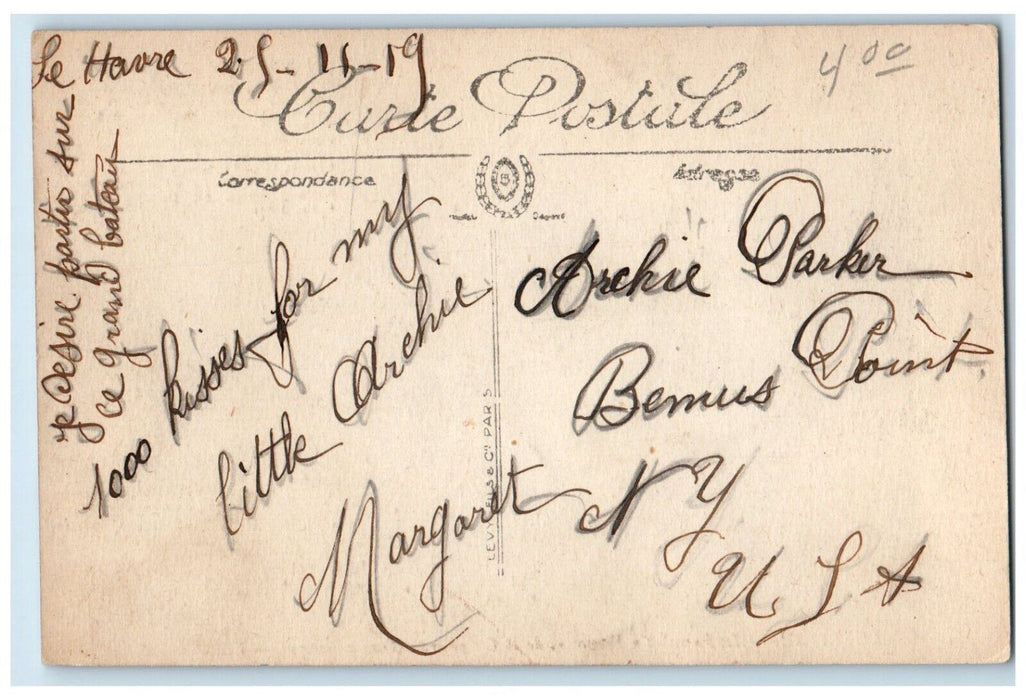 Le Havre 25-11-19
4 00
Carte Postale
Correspondance
Adresse
je désire partir sur
ce grand bateau
1000 kisses for my
little Archie
Margaret
LEVY FILS & Cie PARIS
Archie Parker
Bemus Point
N Y
U S A